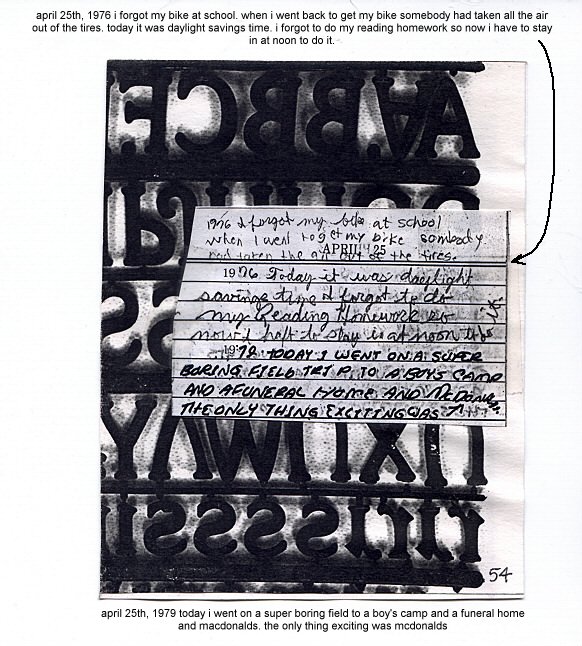 april 25th, 1976 i forgot my bike at school. when i went back to get my bike somebody had taken all the air
out of the tires. today it was daylight savings time. i forgot to do my reading homework so now i have to stay
in at noon to do it.
1976 I forgot my bike at school
when I went to get my bike sombody
APRIL 25
had taken the air out of the tires.
1976 Today it was daylight
savings time I forgot to do
my Reading Homework so
now i haft to stay is at noon to do it.
1979 TODAY I WENT ON A SUPER
BORING FIELD TRIP TO A BOYS CAMP
AND A FUNERAL HOME AND McDONALDS.
THE ONLY THING EXCITTING WAS
54
april 25th, 1979 today i went on a super boring field to a boy's camp and a funeral home
and macdonalds. the only thing exciting was mcdonalds